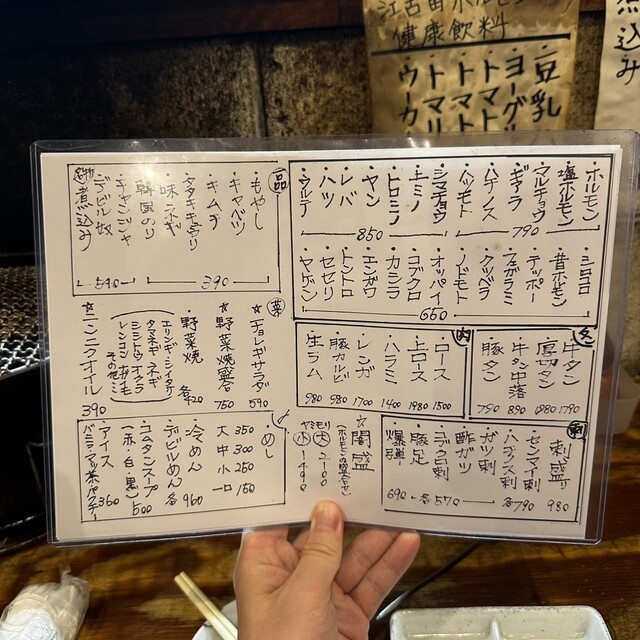 江古田ホルモン
健康飲料
・豆乳
・ヨーグル
・トマト
・トマト
・トマリ
・ウーカ
煮込み
・ホルモン
・塩ホルモン
・マルチョウ
・ギアラ
・ハチノス
・ハツモト
790
・シマチョウ
・上ミノ
・トロミノ
・ヤン
・レバ
・ハツ
・ウルテ
850
・シロコロ
・昔ホルモン
・テッポー
・フェガラミ
・クツベラ
・ノドモト
・オッパイ
・コブクロ
・カシラ
・エンガワ
・トントロ
・セセリ
・ヤゲン
650
一品
・もやし
・キャベツ
・キムチ
・タタキキュウリ
・味ネギ
・韓国のり
390
・チャンジャ
・デビル奴
・煮込み
590
タン
・牛タン 1790
・厚切タン 1980
・牛タン中落 890
・豚タン 790
肉
・ロース 1500
・上ロース 1980
・ハラミ 1400
・レンガ 1700
・豚カルビ 980
・生ラム 980
菜
☆チョレギサラダ 590
☆野菜焼盛合 750
・野菜焼 各420
エリンギ・シイタケ
タマネギ・ネギ
シシトウ・オクラ
レンコン・ナガイモ
その他
☆ニンニクオイル 390
刺
・刺盛り 980
・センマイ刺
・ハチノス刺
・ガツ刺
各790
・酢ガツ
・コブクロ刺
・豚足
各570
・爆弾 690
☆闇盛
(ホルモンの盛合せ)
ヤミモリ
大 2100
小 1490
〆
・めし
大 350
中 300
小 250
一口 150
・冷めん 960
・デビルめん 各
・コムタンスープ
(赤・白・黒) 500
・アイス 360
バニラ・マッ茶・パクチー